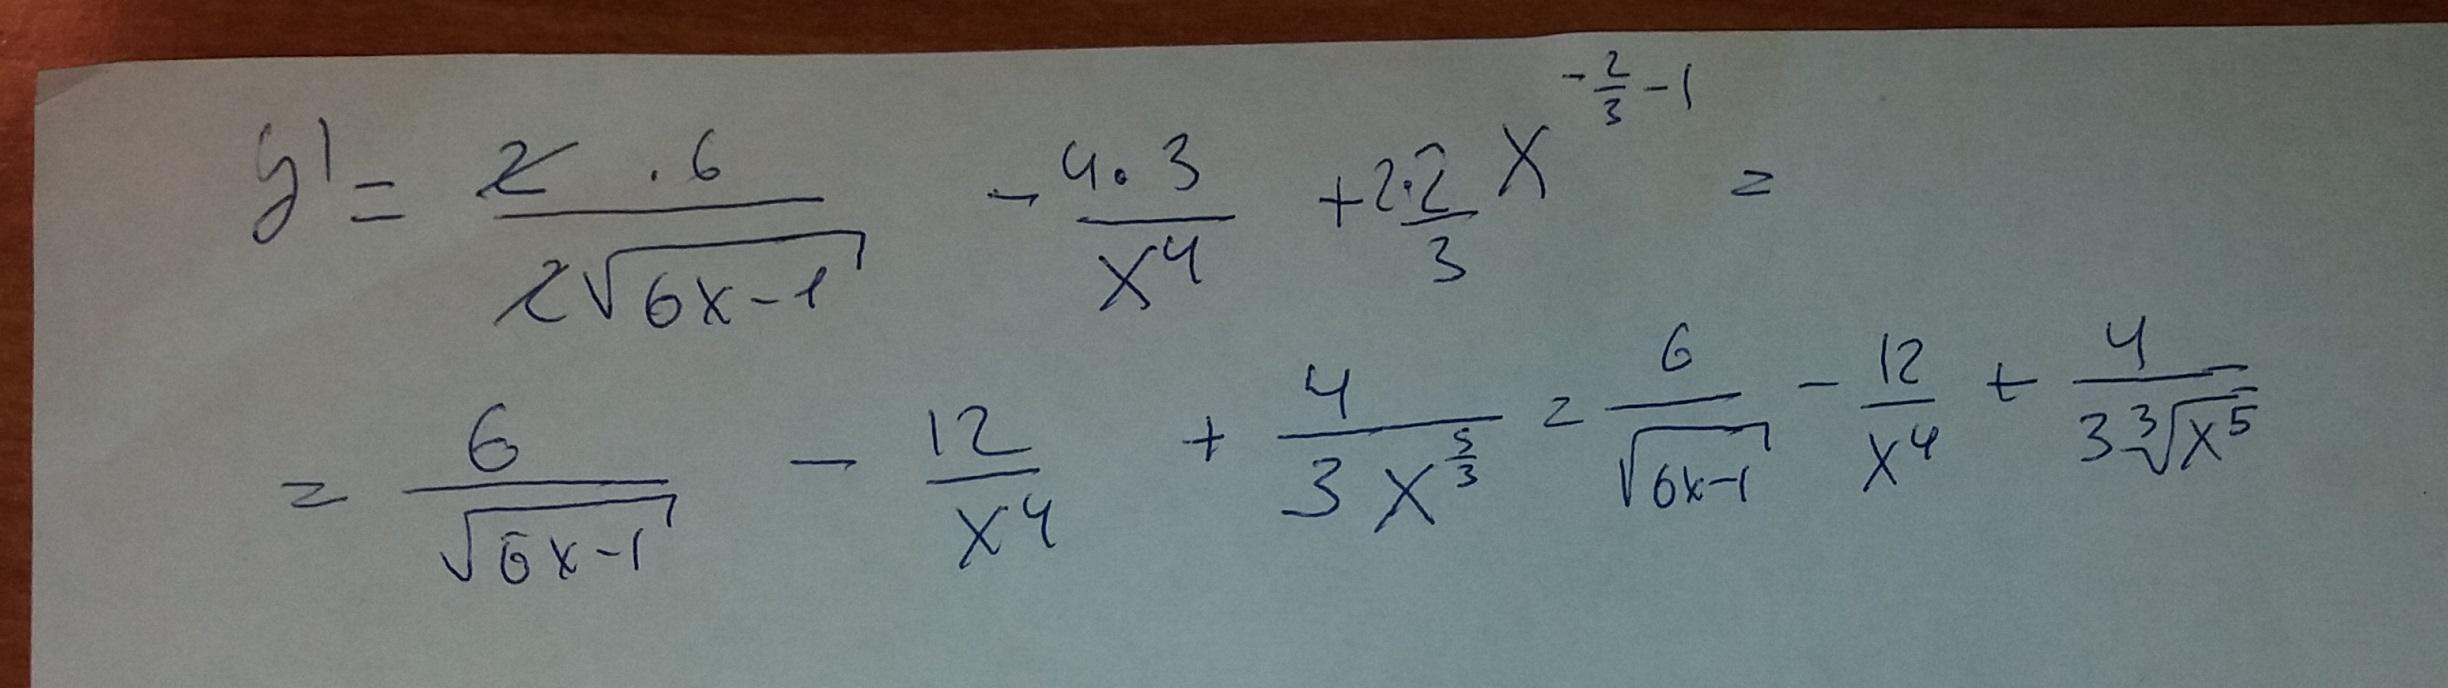 y' = (2 · 6)/(2√(6x-1)) - (4·3)/x⁴ + (2·2)/3 x^(-2/3 - 1) =
= 6/√(6x-1) - 12/x⁴ + 4/(3x^(5/3)) = 6/√(6x-1) - 12/x⁴ + 4/(3∛(x⁵))